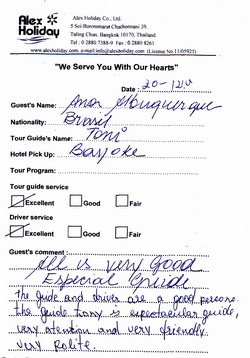 Alex Holiday Co., Ltd.
Alex
Holiday
5 Soi Borommarat Chachonnani 39,
Taling Chan, Bangkok 10170, Thailand.
Tel : 0 2880 7388-9 Fax : 0 2880 8261
www.alexholiday.com, e-mail:info@alexholiday.com (License No.11/05925)
"We Serve You With Our Hearts"
Date : 20-12
Guest's Name: Ana Albuquerque
Nationality: Brasil
Tour Guide's Name: Toni
Hotel Pick Up:
Tour Program:
Tour guide service
Excellent Good Fair
Driver service
Excellent Good Fair
Guest's comment :
All is very Good
Especial Guide
The guide and driver are a good persons.
The guide Tony is espectacular guide,
very atention and very friendly.
very polite.